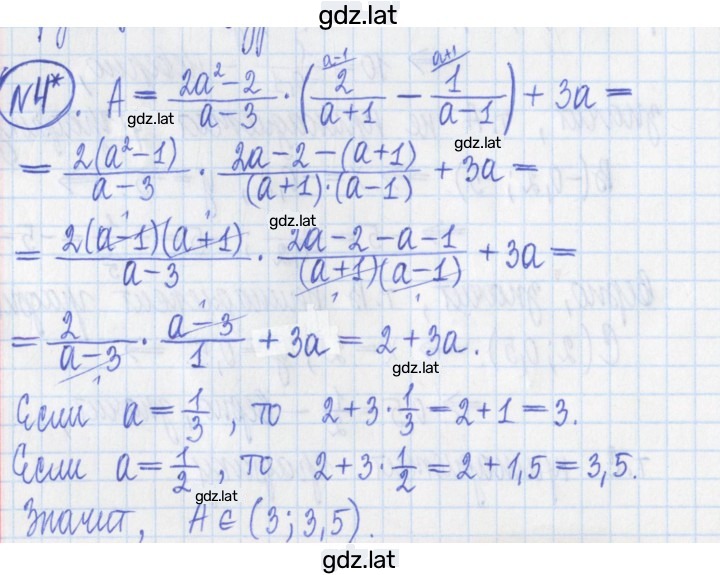 gdz.lat
№4*. A = \frac{2a²-2}{a-3} · (\frac{2}{a+1}^{a-1} - \frac{1}{a-1}^{a+1}) + 3a =
gdz.lat
gdz.lat
= \frac{2(a²-1)}{a-3} · \frac{2a-2-(a+1)}{(a+1)·(a-1)} + 3a =
gdz.lat
= \frac{2(a-1)(a+1)}{a-3} · \frac{2a-2-a-1}{(a+1)(a-1)} + 3a =
= \frac{2}{a-3} · \frac{a-3}{1} + 3a = 2+3a.
gdz.lat
Если a = \frac{1}{3}, то 2+3·\frac{1}{3} = 2+1 = 3.
Если a = \frac{1}{2}, то 2+3·\frac{1}{2} = 2+1,5 = 3,5.
gdz.lat
Значит, A ∈ (3; 3,5).
gdz.lat